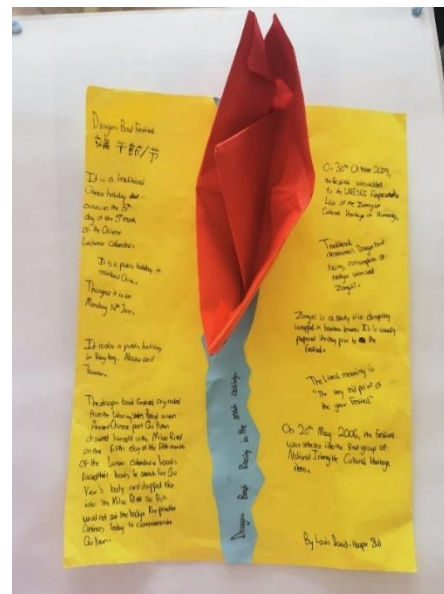 Dragon Boat Festival
端午節/节
It is a traditional
Chinese holiday
occurs on the 5th
day of the 5th month
of the Chinese
calendar.
It is a public holiday in
mainland China.
This year it is on
Monday 14th June.
It is also a public holiday
in Hong Kong, Macau and
Taiwan.
The dragon boat festival originated
from the when
Ancient Chinese poet Qu Yuan
drowned himself in the Miluo River
on the fifth day of the fifth month
of the Lunar calendar. Locals
raced their boats to search for Qu
Yuan's body and dropped rice
into the Miluo River so fish
would not eat the body. The practice
continues today to commemorate
Qu Yuan.
Dragon Boat Racing is the main activity.
On 30th October 2009,
the festival was added
to the UNESCO Representative
List of the Intangible
Cultural Heritage of Humanity.
Traditional
ceremonies: Dragon boat
racing, consumption of
wine and
Zongzi.
Zongzi is a sticky rice dumpling
wrapped in bamboo leaves. It is usually
prepared the day prior to the
festival.
The literal meaning is
"The very mid point of
the year festival"
On 20th May 2006, the festival
was selected into the first group of
National Intangible Cultural Heritage
items.
By